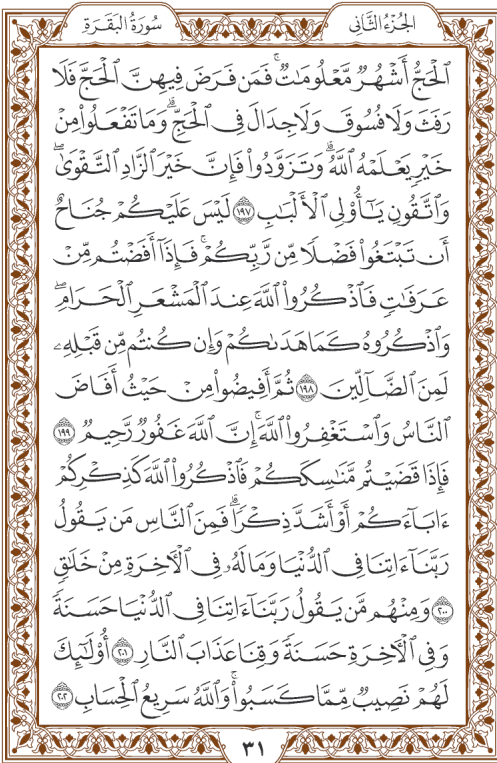 سُورَةُ البَقَرَةِ
الجُزءُ الثَّانِي
ٱلْحَجُّ أَشْهُرٌ مَّعْلُومَٰتٌ ۚ فَمَن فَرَضَ فِيهِنَّ ٱلْحَجَّ فَلَا
رَفَثَ وَلَا فُسُوقَ وَلَا جِدَالَ فِى ٱلْحَجِّ ۗ وَمَا تَفْعَلُوا۟ مِنْ
خَيْرٍ يَعْلَمْهُ ٱللَّهُ ۗ وَتَزَوَّدُوا۟ فَإِنَّ خَيْرَ ٱلزَّادِ ٱلتَّقْوَىٰ ۖ
وَٱتَّقُونِ يَٰٓأُو۟لِى ٱلْأَلْبَٰبِ ١٩٧ لَيْسَ عَلَيْكُمْ جُنَاحٌ
أَن تَبْتَغُوا۟ فَضْلًا مِّن رَّبِّكُمْ ۚ فَإِذَآ أَفَضْتُم مِّنْ
عَرَفَٰتٍ فَٱذْكُرُوا۟ ٱللَّهَ عِندَ ٱلْمَشْعَرِ ٱلْحَرَامِ ۖ
وَٱذْكُرُوهُ كَمَا هَدَىٰكُمْ وَإِن كُنتُم مِّن قَبْلِهِۦ
لَمِنَ ٱلضَّآلِّينَ ١٩٨ ثُمَّ أَفِيضُوا۟ مِنْ حَيْثُ أَفَاضَ
ٱلنَّاسُ وَٱسْتَغْفِرُوا۟ ٱللَّهَ ۚ إِنَّ ٱللَّهَ غَفُورٌ رَّحِيمٌ ١٩٩
فَإِذَا قَضَيْتُم مَّنَٰسِكَكُمْ فَٱذْكُرُوا۟ ٱللَّهَ كَذِكْرِكُمْ
ءَابَآءَكُمْ أَوْ أَشَدَّ ذِكْرًا ۗ فَمِنَ ٱلنَّاسِ مَن يَقُولُ
رَبَّنَآ ءَاتِنَا فِى ٱلدُّنْيَا وَمَا لَهُۥ فِى ٱلْءَاخِرَةِ مِنْ خَلَٰقٍ
٢٠٠ وَمِنْهُم مَّن يَقُولُ رَبَّنَآ ءَاتِنَا فِى ٱلدُّنْيَا حَسَنَةً
وَفِى ٱلْءَاخِرَةِ حَسَنَةً وَقِنَا عَذَابَ ٱلنَّارِ ٢٠١ أُو۟لَٰٓئِكَ
لَهُمْ نَصِيبٌ مِّمَّا كَسَبُوا۟ ۚ وَٱللَّهُ سَرِيعُ ٱلْحِسَابِ ٢٠٢
٣١